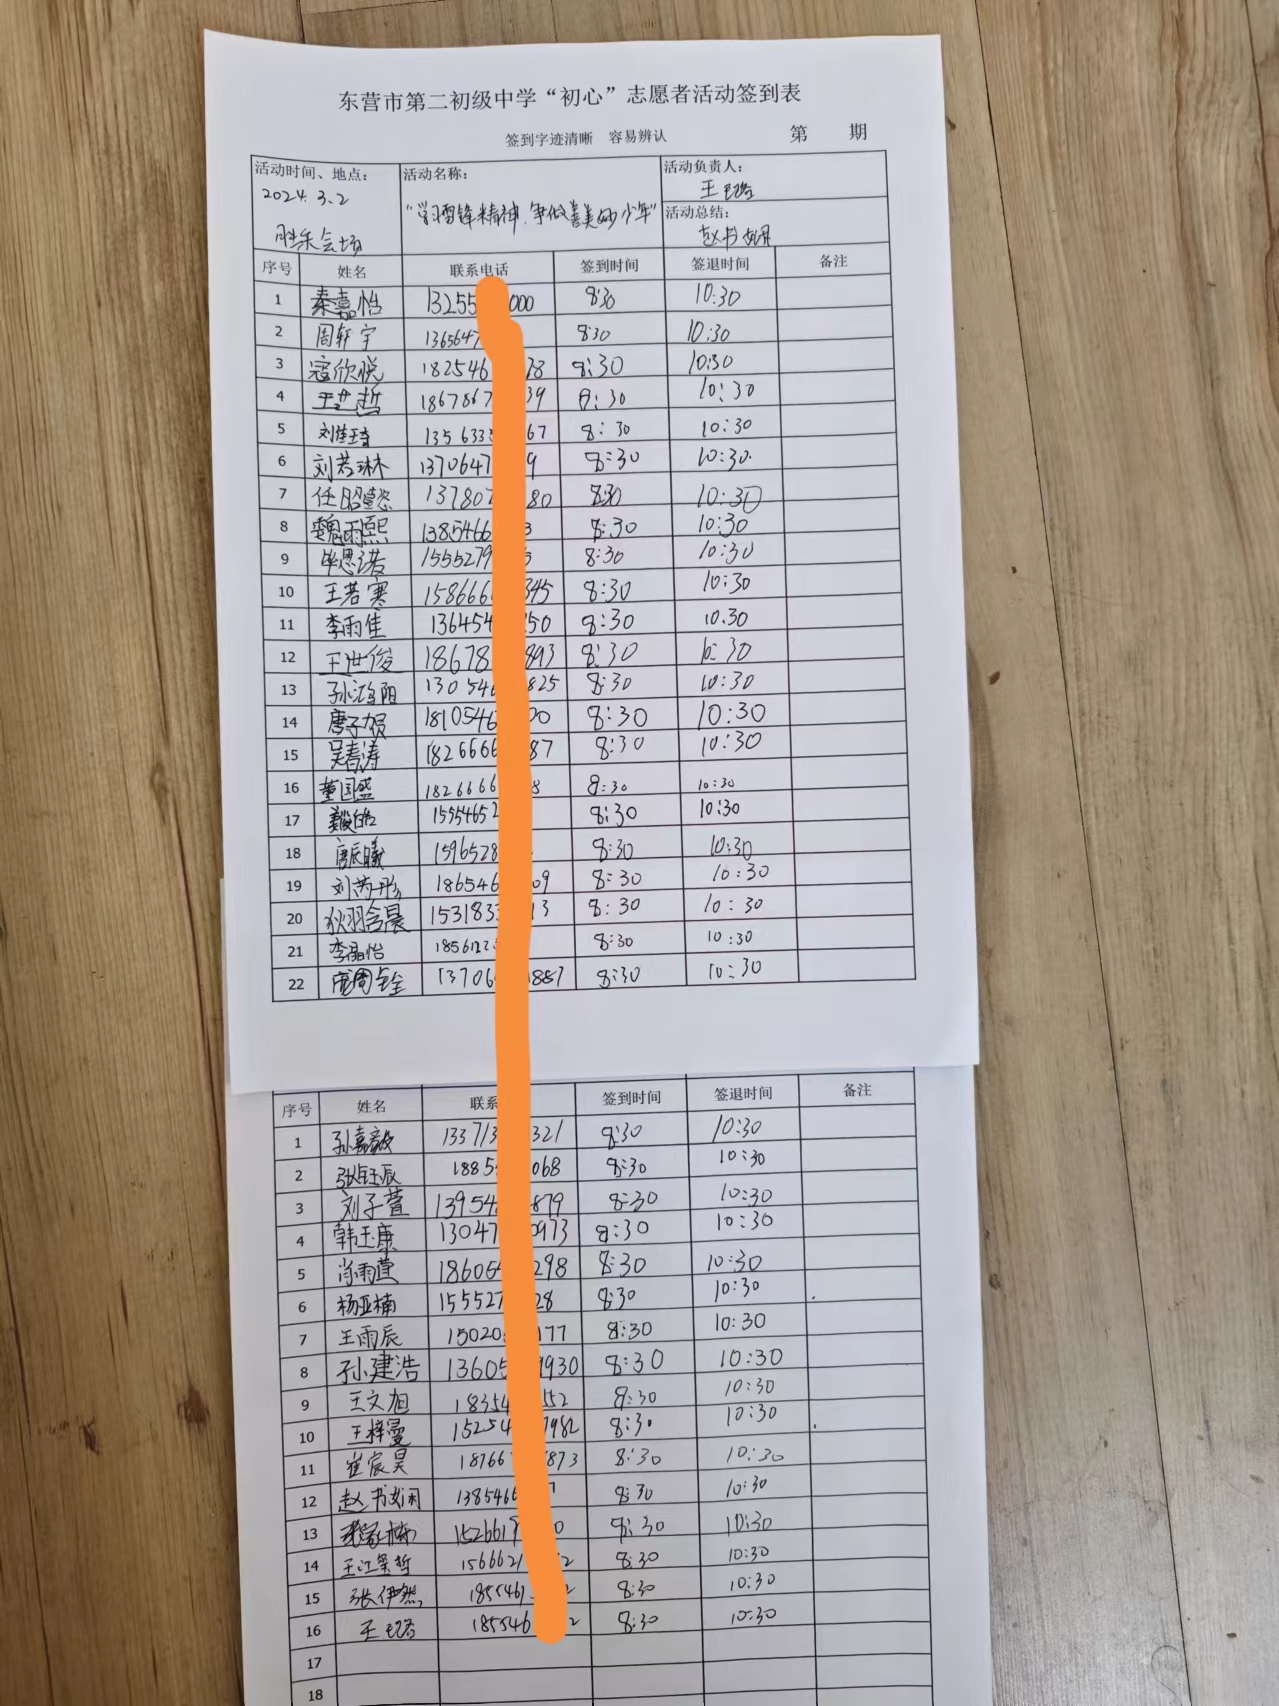 东营市第二初级中学“初心”志愿者活动签到表
签到字迹清晰 容易辨认 第 期
活动时间、地点： 活动名称： 活动负责人：
2024.3.2 “学习雷锋精神,争做善美少年” 王
胜采会场 活动总结：
赵书娴
序号 姓名 联系电话 签到时间 签退时间 备注
1 秦嘉怡 13255 000 8:30 10:30
2 周轩宇 1365647 8:30 10:30
3 寇欣悦 182546 78 8:30 10:30
4 王艺哲 1867867 39 8:30 10:30
5 刘佳琦 1356333 67 8:30 10:30
6 刘若琳 1370647 9 8:30 10:30
7 任昭懿 137807 80 8:30 10:30
8 魏雨熙 1385466 3 8:30 10:30
9 毕恩诺 1555279 5 8:30 10:30
10 王若寒 158666 345 8:30 10:30
11 李雨佳 136454 250 8:30 10.30
12 王世俊 18678 893 8:30 10:30
13 孙鸿阳 130546 825 8:30 10:30
14 唐子贺 1810546 00 8:30 10:30
15 吴春涛 1826666 87 8:30 10:30
16 董国盛 1826666 8 8:30 10:30
17 15554652 8:30 10:30
18 唐辰曦 1596528 8:30 10:30
19 刘芮彤 186546 09 8:30 10:30
20 狄羽含晨 1531833 13 8:30 10:30
21 李晶怡 1856122 8:30 10:30
22 13706 1887 8:30 10:30
序号 姓名 联系 签到时间 签退时间 备注
1 孙嘉毅 133713 321 8:30 10:30
2 张钰辰 1885 068 8:30 10:30
3 刘子萱 13954 879 8:30 10:30
4 韩玉康 13047 0973 8:30 10:30
5 肖雨萱 18605 298 8:30 10:30
6 杨亚楠 155527 28 8:30 10:30
7 王雨辰 15020 177 8:30 10:30
8 孙建浩 13605 9930 8:30 10:30
9 王文旭 18354 52 8:30 10:30
10 王梓曼 15254 7982 8:30 10:30
11 崔宸昊 18766 873 8:30 10:30
12 赵书娴 138546 8:30 10:30
13 152661 0 8:30 10:30
14 王江玺哲 156662 2 8:30 10:30
15 张伊然 185546 2 8:30 10:30
16 王 185546 2 8:30 10:30
17
18